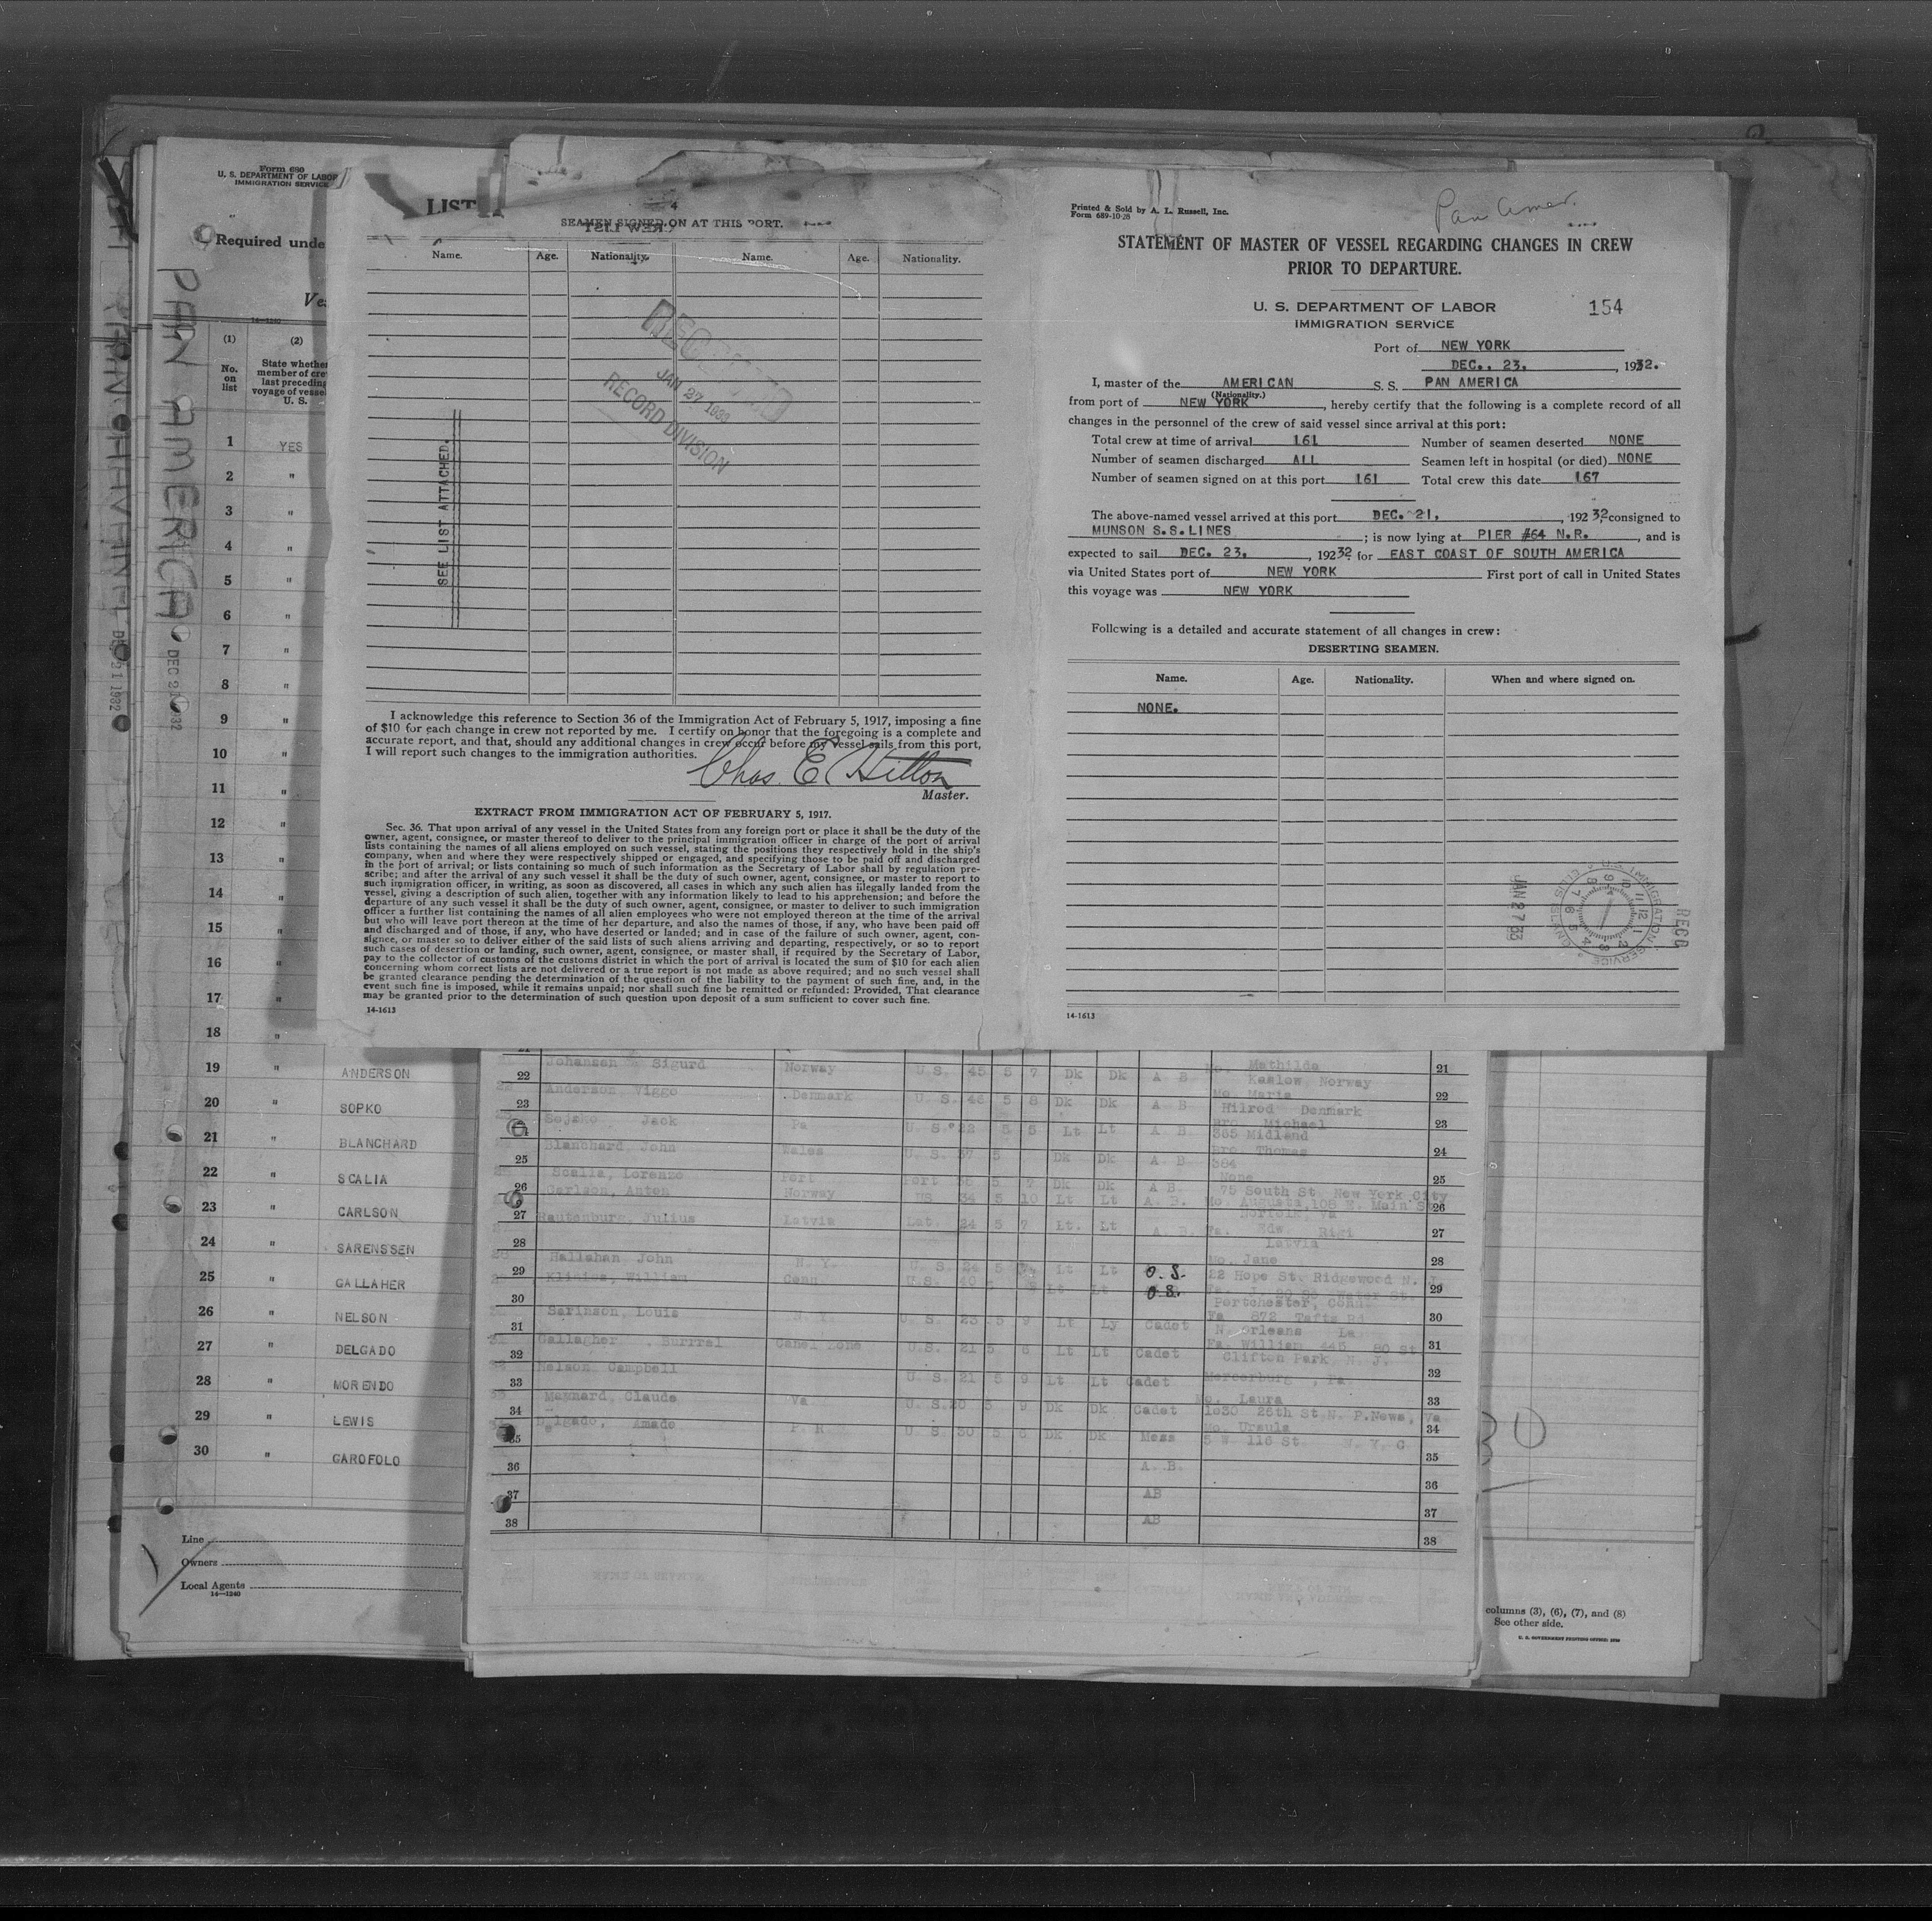 Form 680
U. S. DEPARTMENT OF LABOR
IMMIGRATION SERVICE
Required unde
PAN AMERICA
DEC 21 1932
14—1240
(1)
(2)
No.
on
list
State whether
member of cre
last preceding
voyage of vessel
U. S.
1 YES
2 "
3 "
4 "
5 "
6 "
7 "
8 "
9 "
10 "
11 "
12 "
13 "
14 "
15 "
16 "
17 "
18 "
19 " ANDERSON
20 " SOPKO
21 " BLANCHARD
22 " SCALIA
23 " CARLSON
24 " SARENSSEN
25 " GALLAHER
26 " NELSON
27 " DELGADO
28 " MORENDO
29 " LEWIS
30 " GAROFOLO
Line
Owners
Local Agents
14—1240
LIST
4
SEAMEN SIGNED ON AT THIS PORT.
Name. Age. Nationality. Name. Age. Nationality.
SEE LIST ATTACHED.
JAN 27 1933
RECORD DIVISION
I acknowledge this reference to Section 36 of the Immigration Act of February 5, 1917, imposing a fine
of $10 for each change in crew not reported by me. I certify on honor that the foregoing is a complete and
accurate report, and that, should any additional changes in crew occur before my vessel sails from this port,
I will report such changes to the immigration authorities.
Chas. E Hilton
Master.
EXTRACT FROM IMMIGRATION ACT OF FEBRUARY 5, 1917.
Sec. 36. That upon arrival of any vessel in the United States from any foreign port or place it shall be the duty of the
owner, agent, consignee, or master thereof to deliver to the principal immigration officer in charge of the port of arrival
lists containing the names of all aliens employed on such vessel, stating the positions they respectively hold in the ship's
company, when and where they were respectively shipped or engaged, and specifying those to be paid off and discharged
in the port of arrival; or lists containing so much of such information as the Secretary of Labor shall by regulation pre-
scribe; and after the arrival of any such vessel it shall be the duty of such owner, agent, consignee, or master to report to
such immigration officer, in writing, as soon as discovered, all cases in which any such alien has illegally landed from the
vessel, giving a description of such alien, together with any information likely to lead to his apprehension; and before the
departure of any such vessel it shall be the duty of such owner, agent, consignee, or master to deliver to such immigration
officer a further list containing the names of all alien employees who were not employed thereon at the time of the arrival
but who will leave port thereon at the time of her departure, and also the names of those, if any, who have been paid off
and discharged and of those, if any, who have deserted or landed; and in case of the failure of such owner, agent, con-
signee, or master so to deliver either of the said lists of such aliens arriving and departing, respectively, or so to report
such cases of desertion or landing, such owner, agent, consignee, or master shall, if required by the Secretary of Labor,
pay to the collector of customs of the customs district in which the port of arrival is located the sum of $10 for each alien
concerning whom correct lists are not delivered or a true report is not made as above required; and no such vessel shall
be granted clearance pending the determination of the question of the liability to the payment of such fine, and, in the
event such fine is imposed, while it remains unpaid; nor shall such fine be remitted or refunded: Provided, That clearance
may be granted prior to the determination of such question upon deposit of a sum sufficient to cover such fine.
14-1613
Printed & Sold by A. L. Russell, Inc.
Form 689-10-28
Pan Amer.
STATEMENT OF MASTER OF VESSEL REGARDING CHANGES IN CREW
PRIOR TO DEPARTURE.
U. S. DEPARTMENT OF LABOR 154
IMMIGRATION SERVICE
Port of NEW YORK
DEC., 23, 1932.
I, master of the AMERICAN S. S. PAN AMERICA
(Nationality.)
from port of NEW YORK, hereby certify that the following is a complete record of all
changes in the personnel of the crew of said vessel since arrival at this port:
Total crew at time of arrival 161 Number of seamen deserted NONE
Number of seamen discharged ALL Seamen left in hospital (or died) NONE
Number of seamen signed on at this port 161 Total crew this date 167
The above-named vessel arrived at this port DEC. 21, 192 32, consigned to
MUNSON S.S.LINES ; is now lying at PIER #64 N.R. , and is
expected to sail DEC. 23, , 192 32 for EAST COAST OF SOUTH AMERICA
via United States port of NEW YORK First port of call in United States
this voyage was NEW YORK
Following is a detailed and accurate statement of all changes in crew:
DESERTING SEAMEN.
Name. Age. Nationality. When and where signed on.
NONE.
JAN 27 33
U.S. IMMIGRATION SERVICE
RECD
14-1613
Johansen Sigurd Norway U.S. 45 5 7 Dk Dk A B Mathilde 21
22 Kaslow, Norway
Anderson Viggo Denmark U. S. 46 5 8 Dk Dk A B Mo. Marie 22
23 Hilrod Denmark
Jack Pa U. S. 22 5 5 Lt Lt A B Bro. Michael 23
365 Midland
Blanchard John Wales U. S. 37 5 Dk Dk A B Bro. Thomas 24
25 364
Scalia, Lorenzo Port Port 5 Dk Dk A B. None 25
26 75 South St. New York City
Carlson, Anton Norway US 34 5 10 Lt Lt A. B. Mo. Augusta, 108 E. Main St 26
27 Norfolk, Va
Rautenburg, Julius Latvia Lat. 24 5 7 Lt. Lt A. B. Fa. Edw. Rigi 27
28 Latvia
Hallahan John N. Y. U. S. 24 5 Lt Lt O. S. Mo. Jane 28
29 22 Hope St. Ridgewood N. J.
William Conn U.S. 40 Lt Lt O S. 29
30 Portchester, Conn.
Sarinson, Louis N. Y. U. S. 23 5 9 Lt Ly Cadet Fa 872 Tafts Rd 30
31 N. Orleans La
Gallagher . Burrrel Canel Zone U.S. 21 5 6 Lt Lt Cadet Fa. William 445 80 St 31
32 Clifton Park N. J.
Nelson Campbell U. S. 21 5 9 Lt Lt Cadet Mercerburg , Pa. 32
33
Maynard, Claude Va U. S. 20 5 9 Dk Dk Cadet Mo. Laura 33
34 1030 25th St N. P.News, Va
Delgado, Amado P. R. U. S. 30 5 6 Dk Dk Mess Mo. Ursula 34
35 5 W. 116 St. N. Y. C 35
36 A. B. 36
37 AB 37
38 AB 38
30
columns (3), (6), (7), and (8)
See other side.
U. S. GOVERNMENT PRINTING OFFICE